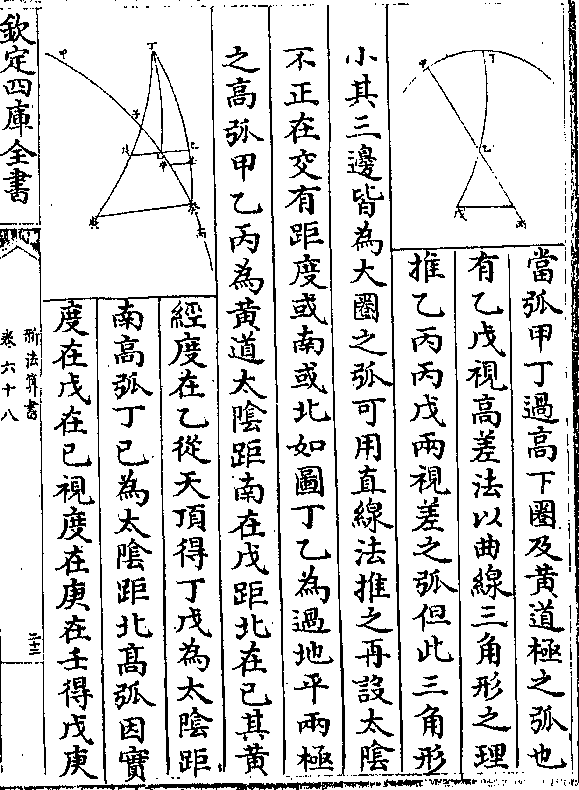 當弧甲丁過高下圈及黄道極之弧也
有乙戊視高差法以曲線三角形之理
推乙丙丙戊兩視差之弧但此三角形
小其三邊皆為大圈之弧可用直線法推之再設太陰
不正在交有距度或南或北如圖丁乙為過地平兩極
之高弧甲乙丙為黄道太陰距南在戊距北在已其黄
經度在乙從天頂得丁戊為太陰距
南高弧丁已為太陰距北高弧因實
度在戊在已視度在庚在壬得戊庚
欽定四庫全書
新法算書
卷六十八
二十三
丁
甲
乙
戊
丙
丁
甲
子
戊
乙
已
庚
丙